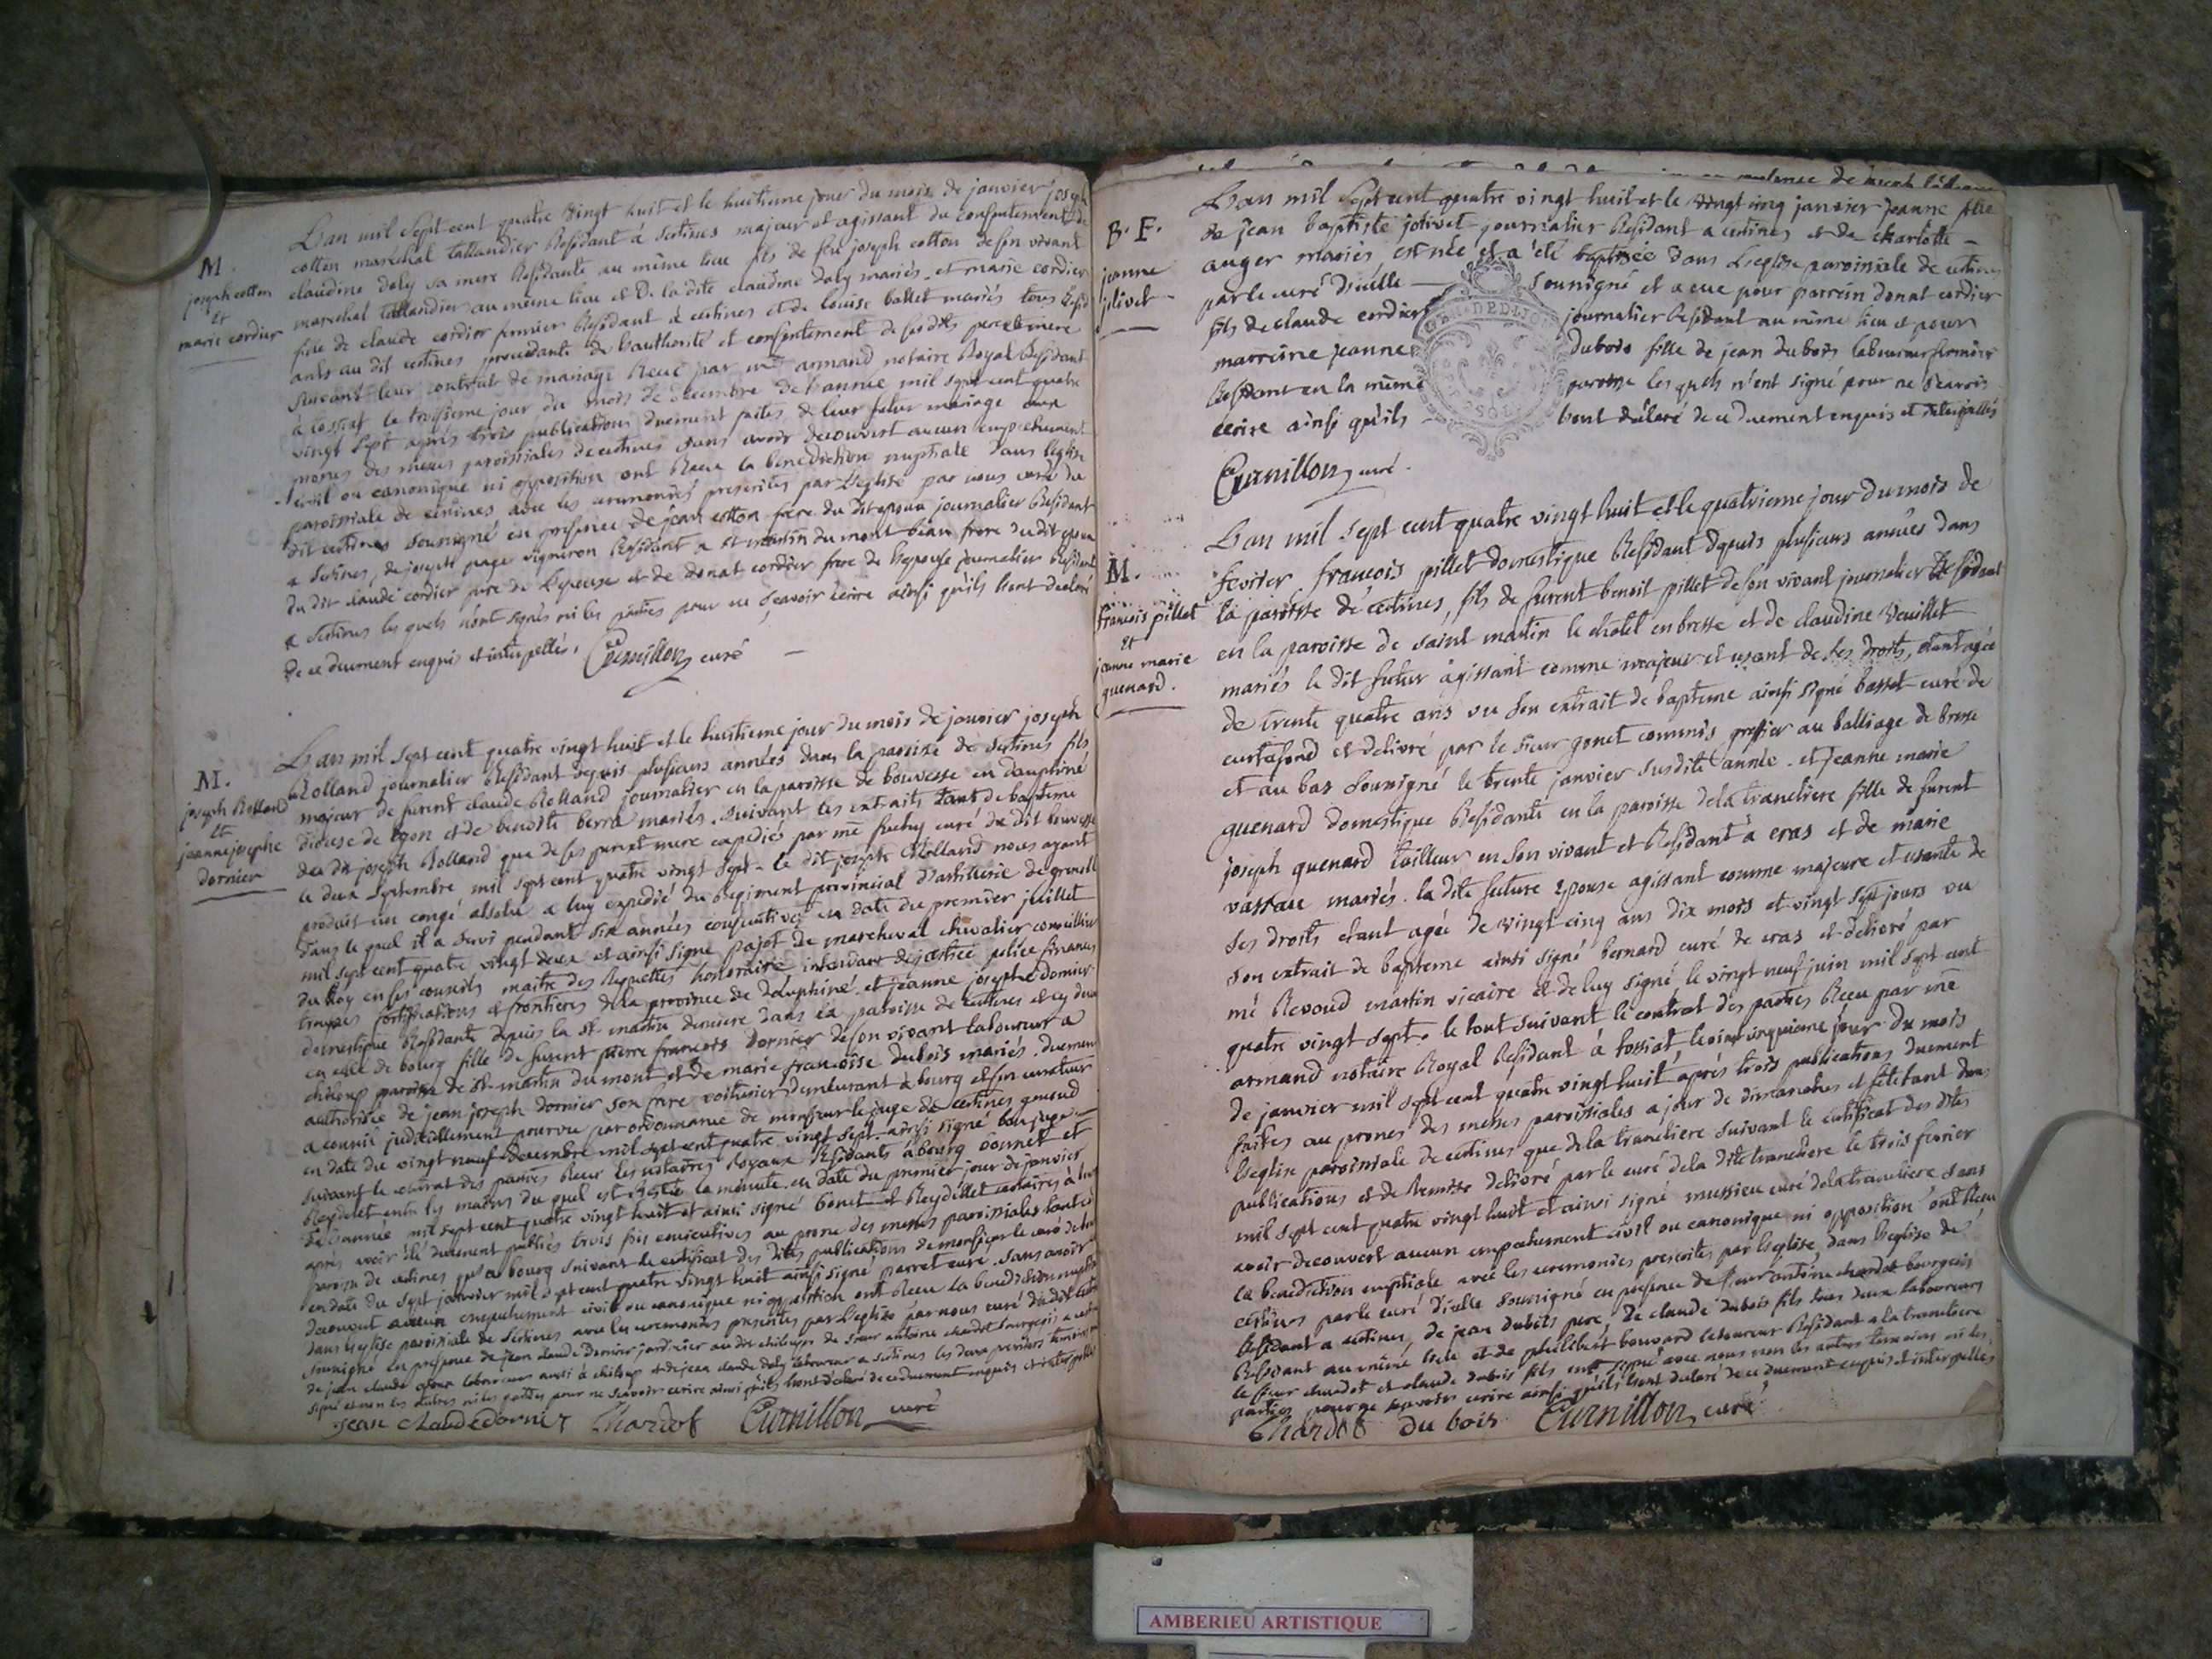 M.
joseph cotton
et
marie cordier
L'an mil sept cent quatre vingt huit et le huitieme jour du mois de janvier joseph
cotton marechal tallandier Residant à sertines majeur et agissant du consentement de
claudine daly sa mere Residante au même lieu fils de feu joseph cotton de son vivant
marechal tallandier au même lieu et D. la dite claudine daly mariés. et marie cordier
fille de claude cordier fermier Residant à certines et de louise ballet mariés tous Resid
ants au dit certines procedante de l'authorité et consentement de ses dits pere et mere
suivant leur contrat de mariage Receu par me armand notaire Royal Residant
à tossiat le troisieme jour du mois de decembre de l'année mil sept cent quatre
vingt sept après trois publications duement faites de leur futur mariage aux
prones des messes paroissiales de certines sans avoir decouvert aucun empechement
civil ou canonique ni opposition ont Receu la benediction nuptiale dans l'eglise
paroissiale de certines avec les ceremonies prescrites par l'eglise par nous curé du
dit certines soussigné en presence de jean cotton frere du dit epoux journalier Residant
a sertines, de joseph page vigneron Residant a st martin du mont beau frere du dit epoux
du dit claude cordier pere de l'epouse et de donat cordier frere de l'epouse journalier Residant
a sertines les quels n'ont signés ni les parties pour ne sçavoir écrire ainsi qu'ils l'ont declaré
de ce duement enquis et interpellés.
Curnillon curé
M.
joseph Rolland
et
jeanne josephe
dornier
L'an mil sept cent quatre vingt huit et le huitieme jour du mois de janvier joseph
Rolland journalier Residant depuis plusieurs années dans la paroisse de sertines fils
majeur de furent claude Rolland journalier en la paroisse de bouvesse en dauphiné
diocese de lyon et de benoite berra mariés. suivant les extraits tant de bapteme
du dit joseph Rolland que de ses pere et mere expediés par me curé du dit bouvesse
le deux septembre mil sept cent quatre vingt sept. le dit joseph Rolland nous ayant
produit un congé absolu a luy expedié du Regiment provincial d'artillerie de grenoble
dans le quel il a servi pendant six années consecutives en date du premier juillet
mil sept cent quatre vingt deux et ainsi signé pajot de marcheval chevalier conseillier
du Roy en ses conseils maitre des Requettes honoraire intendant de justice police finances
troupes fortifications et frontieres de la province de dauphiné. et jeanne josephe dornier
domestique Residante depuis la st martin derniere dans la paroisse de certines et cy devant
en celle de bourg fille de furent pierre francois dornier de son vivant laboureur a
chiloup paroisse de st martin du mont et de marie francoise dubois mariés. duement
authorisée de jean joseph dornier son frere voiturier demeurant à bourg et son curateur
a conseil judiciellement pourvu par ordonnance de monsieur le juge de certines
en date du vingt neuf decembre mil sept cent quatre vingt sept ainsi signé
suivant le contrat des parties Receu les notaires Royaux Residants à bourg et
Reydelet entre les mains du quel est restée la minute en date du premier jour de janvier
de l'année mil sept cent quatre vingt huit et ainsi signé et Reydellet notaires
après avoir été duement publiés trois fois consecutives au prone des messes paroissiales tant en
paroisse de certines qu'a bourg suivant le certificat des dites publications de monsieur le curé
en date du sept janvier mil sept cent quatre vingt huit ainsi signé parret curé. sans avoir
decouvert aucun empechement civil ou canonique ni opposition ont Receu la benediction nuptiale
dans l'eglise paroissiale de sertines avec les ceremonies prescrites par l'eglise par nous curé du dit
soussigné en presence de jean claude dornier jardinier au dit chiloup de sieur antoine chardot bourgeois a
de jean claude laboureur aussi à chiloup et de jean claude daly laboureur a sertines les deux premiers temoins
signé et non les autres ni les parties pour ne scavoir ecrire ainsi qu'ils l'ont declaré de ce duement enquis et interpellés
jean claude dornier Chardot Curnillon curé
B. F.
jeanne
jolivet
L'an mil sept cent quatre vingt huit et le vingt cinq janvier jeanne fille
de jean baptiste jolivet journalier Residant a certines et de charlotte
auger mariés, est née et a été baptisée dans l'eglise paroissiale de certines
par le curé d'icelle soussigné et a eue pour parrein donat cordier
fils de claude cordier journalier Residant au même lieu et pour
marreine jeanne dubois fille de jean dubois laboureur fermier
Residant en la même paroisse les quels n'ont signé pour ne sçavoir
écrire ainsi qu'ils l'ont declaré de ce duement enquis et interpellés
Curnillon curé.
M.
francois pillet
et
jeanne marie
guenard.
L'an mil sept cent quatre vingt huit et le quatrieme jour du mois de
fevrier francois pillet domestique Residant depuis plusieurs années dans
la paroisse de certines, fils de furent benoit pillet de son vivant journalier Residant
en la paroisse de saint martin le chatel en bresse et de claudine Veuillet
mariés le dit futur agissant comme majeur et usant de ses droits, étant agée
de trente quatre ans vu son extrait de bapteme ainsi signé basset curé de
curtafond et delivré par le sieur gonet commis greffier au balliage de bresse
et au bas soussigné le trente janvier susdite année. et jeanne marie
guenard domestique Residante en la paroisse de la trancliere fille de furent
joseph guenard tailleur en son vivant et Residant à cras et de marie
vassau mariés. la dite future epouse agissant comme majeure et usante de
ses droits etant agée de vingt cinq ans dix mois et vingt sept jours vu
son extrait de bapteme ainsi signé bernard curé de cras et delivré par
mé Revoud martin vicaire et de luy signé le vingt neuf juin mil sept cent
quatre vingt sept. le tout suivant le contrat des parties Receu par me
armand notaire Royal Residant à tossiat le vingt cinquieme jour du mois
de janvier mil sept cent quatre vingt huit après trois publications duement
faites au prones des messes paroissiales a jour de dimanches et fête tant dans
l'eglise paroissiale de certines que de la trancliere suivant le certificat des dites
publications et de Remise delivré par le curé de la dite trancliere le trois fevrier
mil sept cent quatre vingt huit et ainsi signé mussieu curé de la trancliere sans
avoir decouvert aucun empechement civil ou canonique ni opposition ont Receu
la benediction nuptiale avec les ceremonies prescrites par l'eglise dans l'eglise de
certines par le curé d'icelle soussigné en presence de sieur antoine chardot bourgeois
Residant a certines, de jean dubois pere, de claude dubois fils tous deux laboureurs
Residant au même lieu et de philebert bouvard laboureur Residant a la trancliere
le sieur chardot et claude dubois fils ont signé avec nous non les autres temoins ni les
parties pour ne sçavoir ecrire ainsi qu'ils l'ont declaré de ce duement enquis et interpellés
Chardot du bois Curnillon curé
AMBERIEU ARTISTIQUE